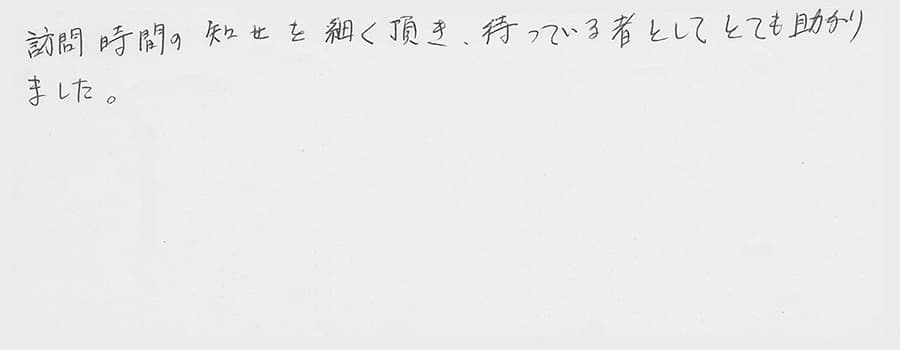 訪問時間の知せを細く頂き、待っている者としてとても助かり
ました。